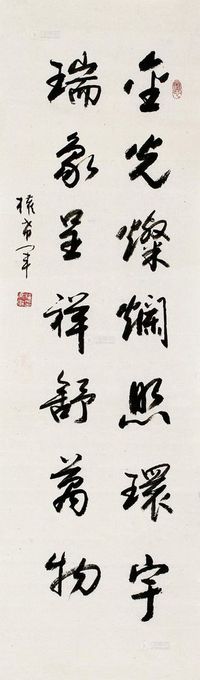 金光燦爛照環宇
瑞象呈祥舒萬物
權希軍